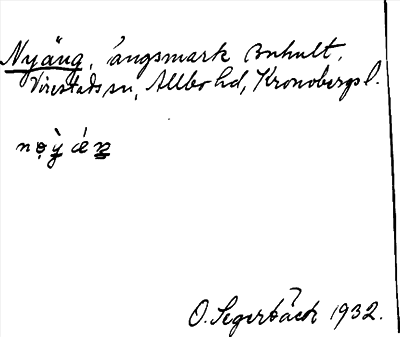 Nyäng, ängsmark Bnhult,
Virestads sn, Allbo hd, Kronobergs l.
O. Segerbäck 1932.